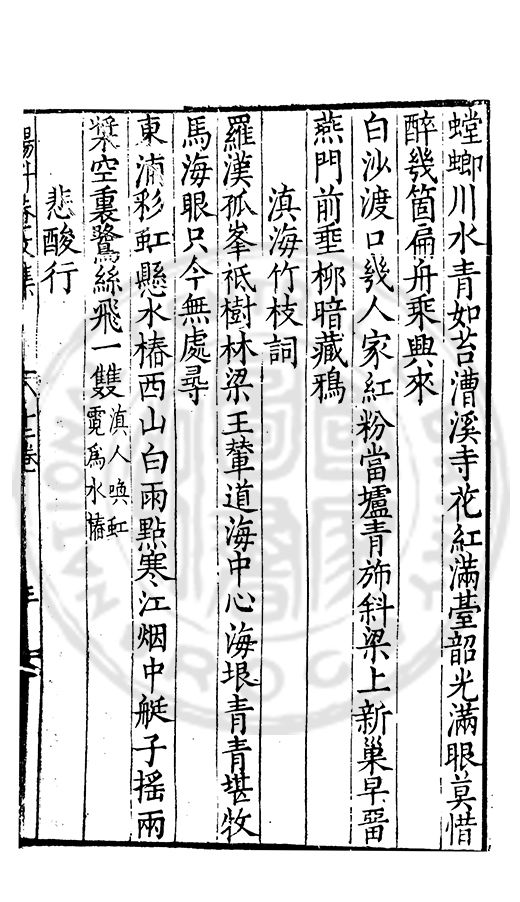 螳螂川水青如苔漕溪寺花紅滿臺韶光滿眼莫惜
醉幾箇扁舟乘興來
白沙渡口幾人家紅粉當壚青斾斜梁上新巢早畱
燕門前垂桺暗藏鴉
滇海竹枝詞
羅漢孤峯祗樹林梁王輦道海中心海垠青青堪牧
馬海眼只今無處尋
東浦彩虹懸水椿西山白雨點寒江烟中艇子搖兩
槳空裏鷺絲飛一雙滇人喚虹
霓爲水椿
悲酸行